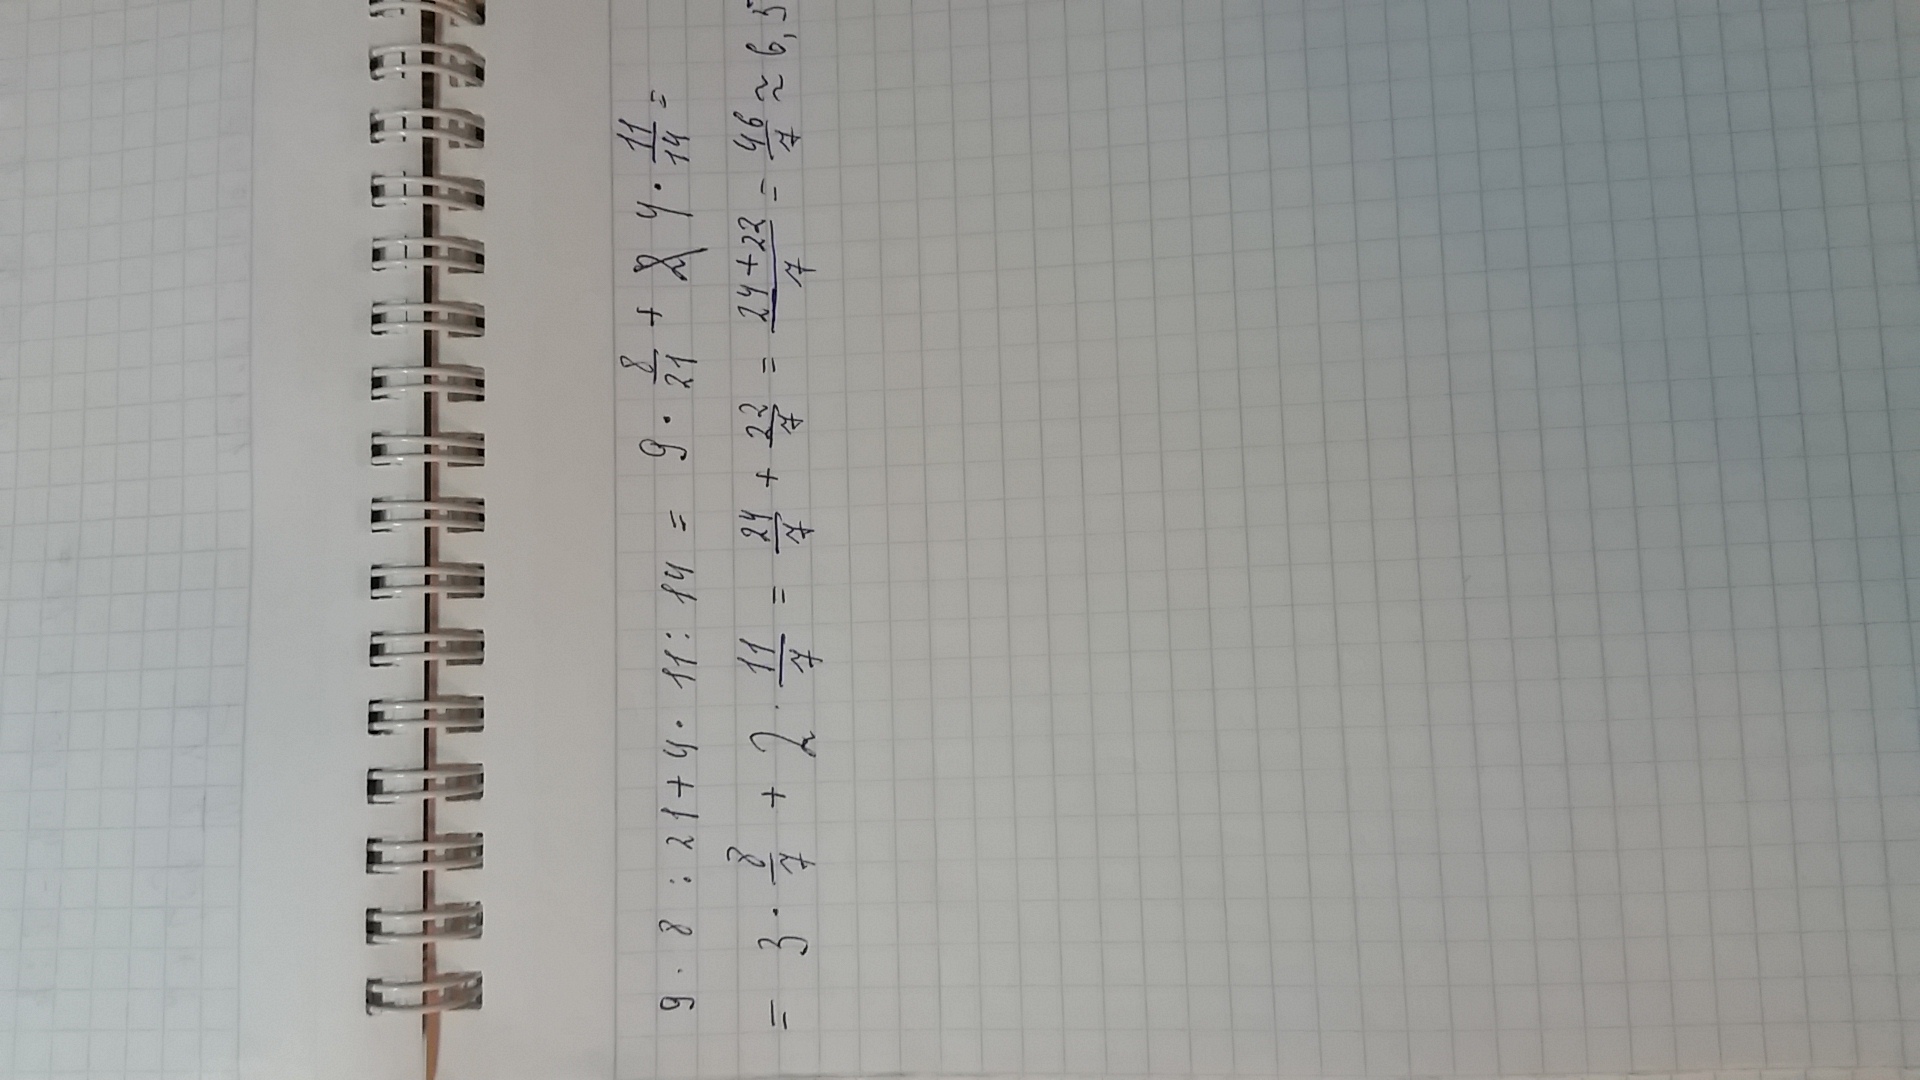 9 · 8 : 21 + 4 · 11 : 14 = 9 · 8/21 + 4 · 11/14 =
= 3 · 8/7 + 2 · 11/7 = 24/7 + 22/7 = 24+22/7 = 46/7 ≈ 6,5